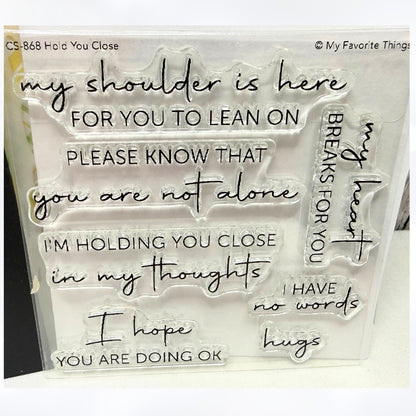 CS-868 Hold You Close
© My Favorite Things
my shoulder is here
FOR YOU TO LEAN ON
PLEASE KNOW THAT
you are not alone
my heart
BREAKS FOR YOU
I'M HOLDING YOU CLOSE
in my thoughts
I HAVE
no words
I hope
YOU ARE DOING OK
hugs